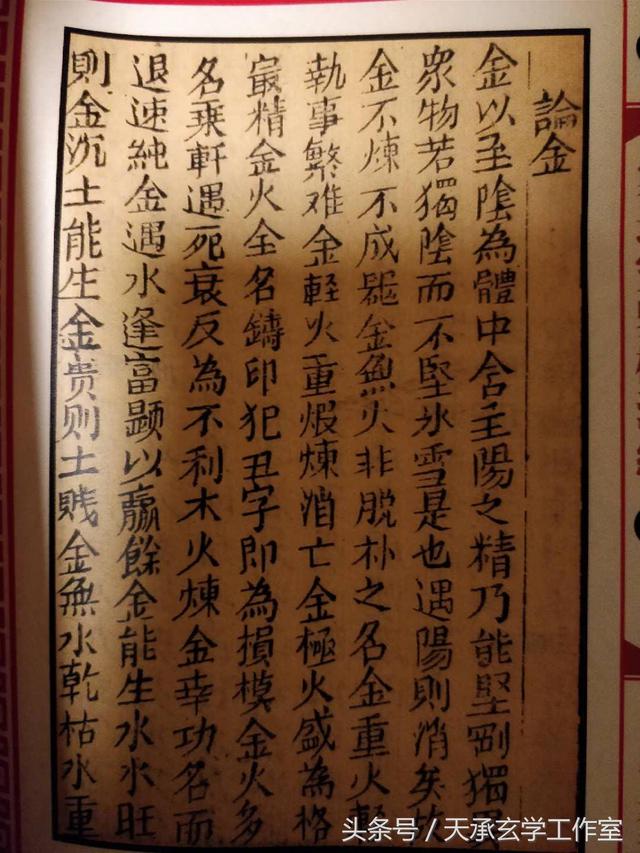 論金
金以至陰為體中含至陽之精乃能堅剛獨異
衆物若獨陰而不堅氷雪是也遇陽則消矣故
金不煉不成噐金無火非脱朴之名金重火輕
執事繁难金輕火重煆煉消亡金極火盛為格
最精金火全名鑄印犯丑字即為損模金火多
名乗軒遇死衰反為不利木火煉金幸功名而
退速純金遇水逢富顕以贏餘金能生水水旺
則金沉土能生金貴则土贱金無水乾枯水重
头条号/天承玄学工作室